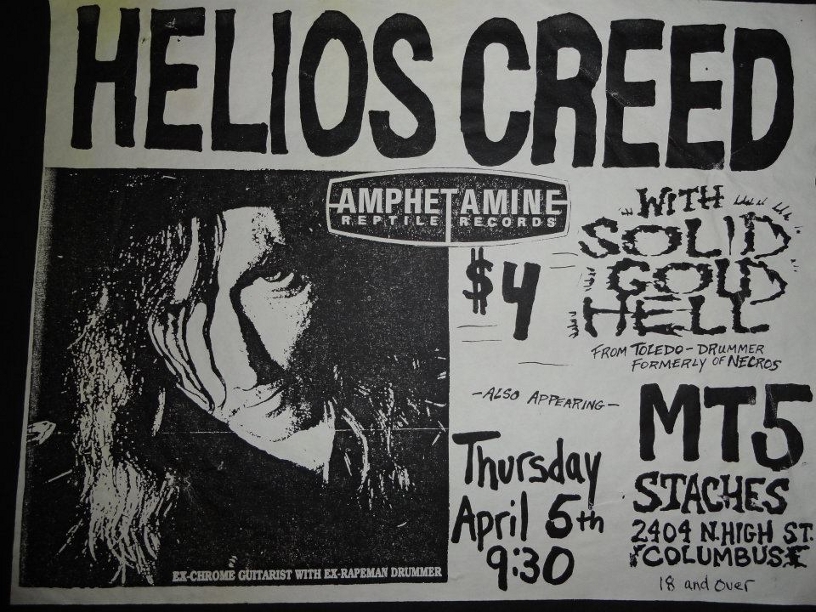 HELIOS CREED
AMPHETAMINE
REPTILE RECORDS
WITH
SOLID
GOLD
HELL
$4
FROM TOLEDO-DRUMMER
FORMERLY OF NECROS
-ALSO APPEARING-
MT5
Thursday
April 5th
9:30
STACHES
2404 N.HIGH ST.
COLUMBUS
18 and over
EX-CHROME GUITARIST WITH EX-RAPEMAN DRUMMER